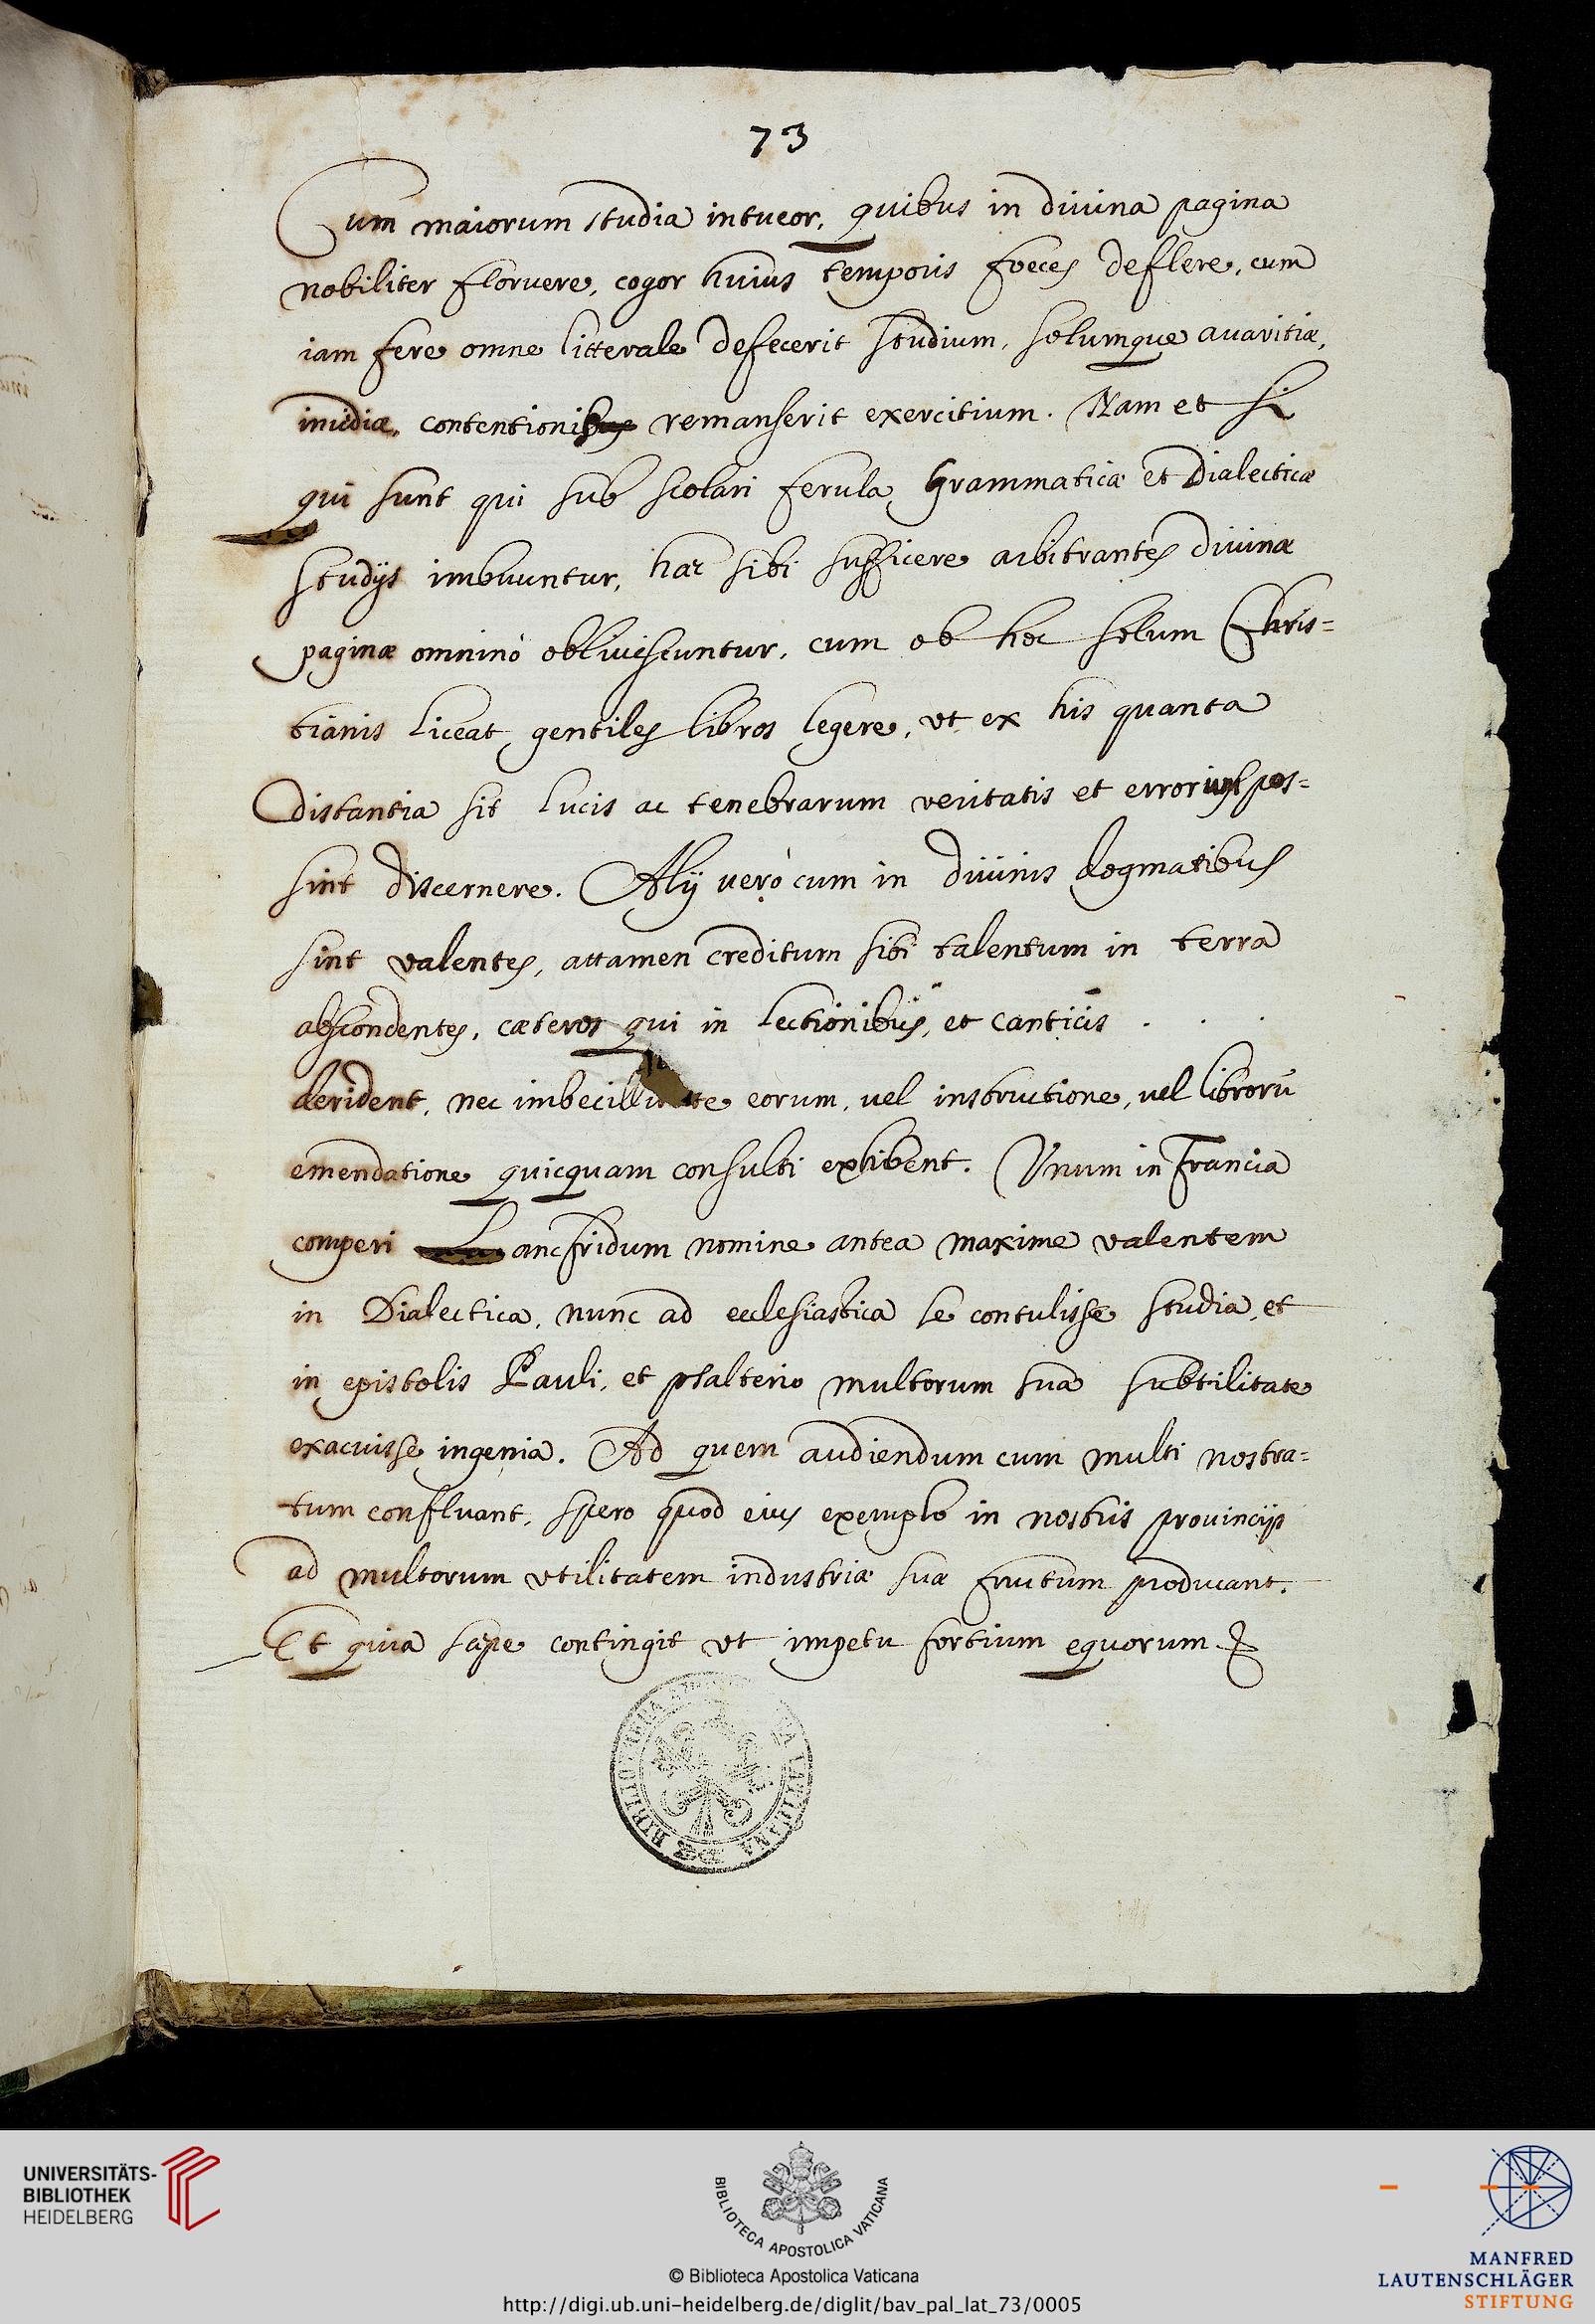 73
Cum maiorum studia intueor, quibus in diuina pagina
nobiliter floruere, cogor huius temporis foeces deflere, cum
iam fere omne litterale defecerit studium, solumque auaritiæ,
inuidiæ, contentionis remanserit exercitium. Nam et si
qui sunt qui sub scolari ferula Grammaticæ et Dialecticæ
studijs imbuuntur, hæc sibi sufficere arbitrantes diuinæ
paginæ omninò obliuiscuntur, cum ob hoc solum Chris=
tianis liceat gentiles libros legere, ut ex his quanta
distantia sit lucis ac tenebrarum veritatis et erroris pos=
sint discernere. Alij verò cum in diuinis dogmatibus
sint valentes, attamen creditum sibi talentum in terra
abscondentes, cæteros qui in lectionibus, et canticis . . .
derident, nec imbecillitate eorum, vel instructione, vel librorū
emendatione quicquam consulti exhibent. Vnum in Francia
comperi Lancfridum nomine antea maxime valentem
in Dialectica, nunc ad ecclesiastica se contulisse studia, et
in epistolis Pauli, et psalterio multorum sua subtilitate
exacuisse ingenia. Ad quem audiendum cum multi nostra=
tum confluant, spero quod eius exemplo in nostris prouincijs
ad multorum utilitatem industriæ suæ fructum producant.
Et quia sæpe contingit ut impetu fortium equorum
UNIVERSITÄTS-
BIBLIOTHEK
HEIDELBERG
BIBLIOTECA APOSTOLICA VATICANA
© Biblioteca Apostolica Vaticana
http://digi.ub.uni-heidelberg.de/diglit/bav_pal_lat_73/0005
MANFRED
LAUTENSCHLÄGER
STIFTUNG